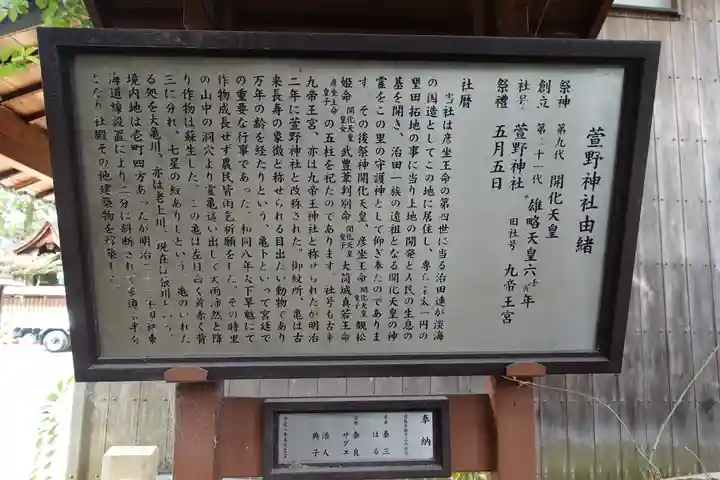 萱野神社由緒
祭神 第九代 開化天皇
創立 第二十一代 雄略天皇六壬寅年
社号 萱野神社 旧社号 九帝王宮
祭禮 五月五日
社暦
当社は彦坐王命の第四世に当る治田連が淡海
の国造としてこの地に居住し、専ら 一円の
墾田拓地の事に当り土地の開発と人民の生息の
基を開き、治田一族の遠祖となる開化天皇の神
霊をこの里の守護神として仰ぎ奉たのでありま
す。その後祭神開化天皇、彦坐王命 開化天皇皇子 観松
姫命 開化天皇皇女 武豊葦判別命 開化天皇皇子 大筒城真若王命
彦坐王命皇子 の五柱を祀たのであります。社号も古来
九帝王宮、亦は九帝王神社と称けられたが明治
二年に萱野神社と改称された。御紋所、亀は古
来長寿の象徴と称せられる目出たい動物であり
万年の齢を経たりという、亀卜といって宮廷で
の重要な行事であった。和同八年天下旱魃にて
作物成長せず農民皆雨乞祈願をした。その時里
の山中の洞穴より霊亀這い出して大雨沛然と降
り作物は蘇生した。この亀は左目白く首赤く背
三に分れ、七星の紋ありしという。亀のいれた
る処を大亀川、亦は老上川、現在は狼川という。
境内地は壱町四方あったが明治二十 東
海道線設置により二分に斜断されて 半分
となり社殿その他建築物を移築した。
奉納
泰三
はる
奈良
サグエ
浩人
典子